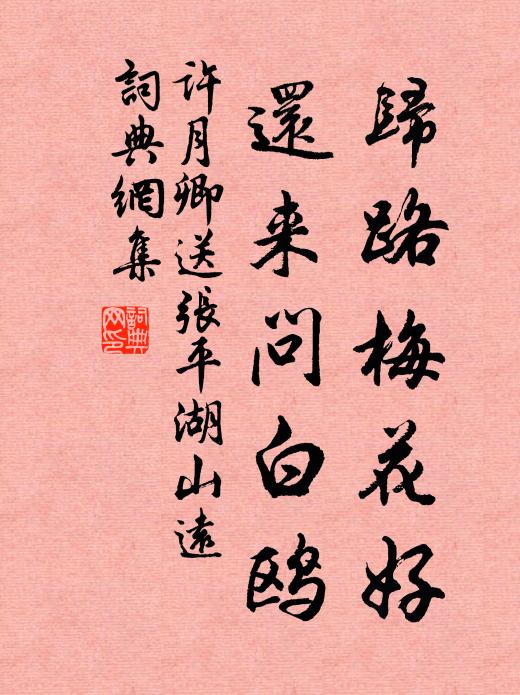 歸路梅花好
還来問白鸥
許月卿送張平湖山遠
詞典網集
詞典網印